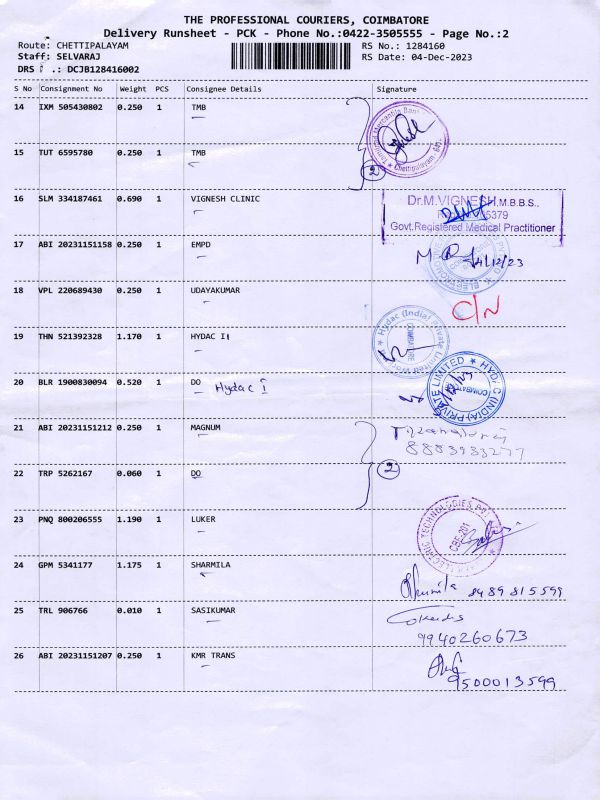 THE PROFESSIONAL COURIERS, COIMBATORE
Delivery Runsheet - PCK - Phone No.:0422-3505555 - Page No.:2
Route: CHETTIPALAYAM RS No.: 1284160
Staff: SELVARAJ RS Date: 04-Dec-2023
DRS .: DCJB128416002
S No Consignment No Weight PCS Consignee Details Signature
14 IXM 505430802 0.250 1 TMB
Chettipalayam
15 TUT 6595780 0.250 1 TMB
2
16 SLM 334187461 0.690 1 VIGNESH CLINIC
Dr.M.VIGNESH,M.B.B.S.,
5379
Govt.Registered Medical Practitioner
17 ABI 20231151158 0.250 1 EMPD
4/12/23
18 VPL 220689430 0.250 1 UDAYAKUMAR
C/N
19 THN 521392328 1.170 1 HYDAC II
Hydac (India) Private Limited
COIMBATORE
20 BLR 1900830094 0.520 1 DO Hydac I
HYDAC (INDIA) PRIVATE LIMITED
21 ABI 20231151212 0.250 1 MAGNUM
8883933277
22 TRP 5262167 0.060 1 DO
2
23 PNQ 800206555 1.190 1 LUKER
ELECTRIC TECHNOLOGIES PVT
CBE-201
24 GPM 5341177 1.175 1 SHARMILA
8489815599
25 TRL 906766 0.010 1 SASIKUMAR
9940260673
26 ABI 20231151207 0.250 1 KMR TRANS
9500013599